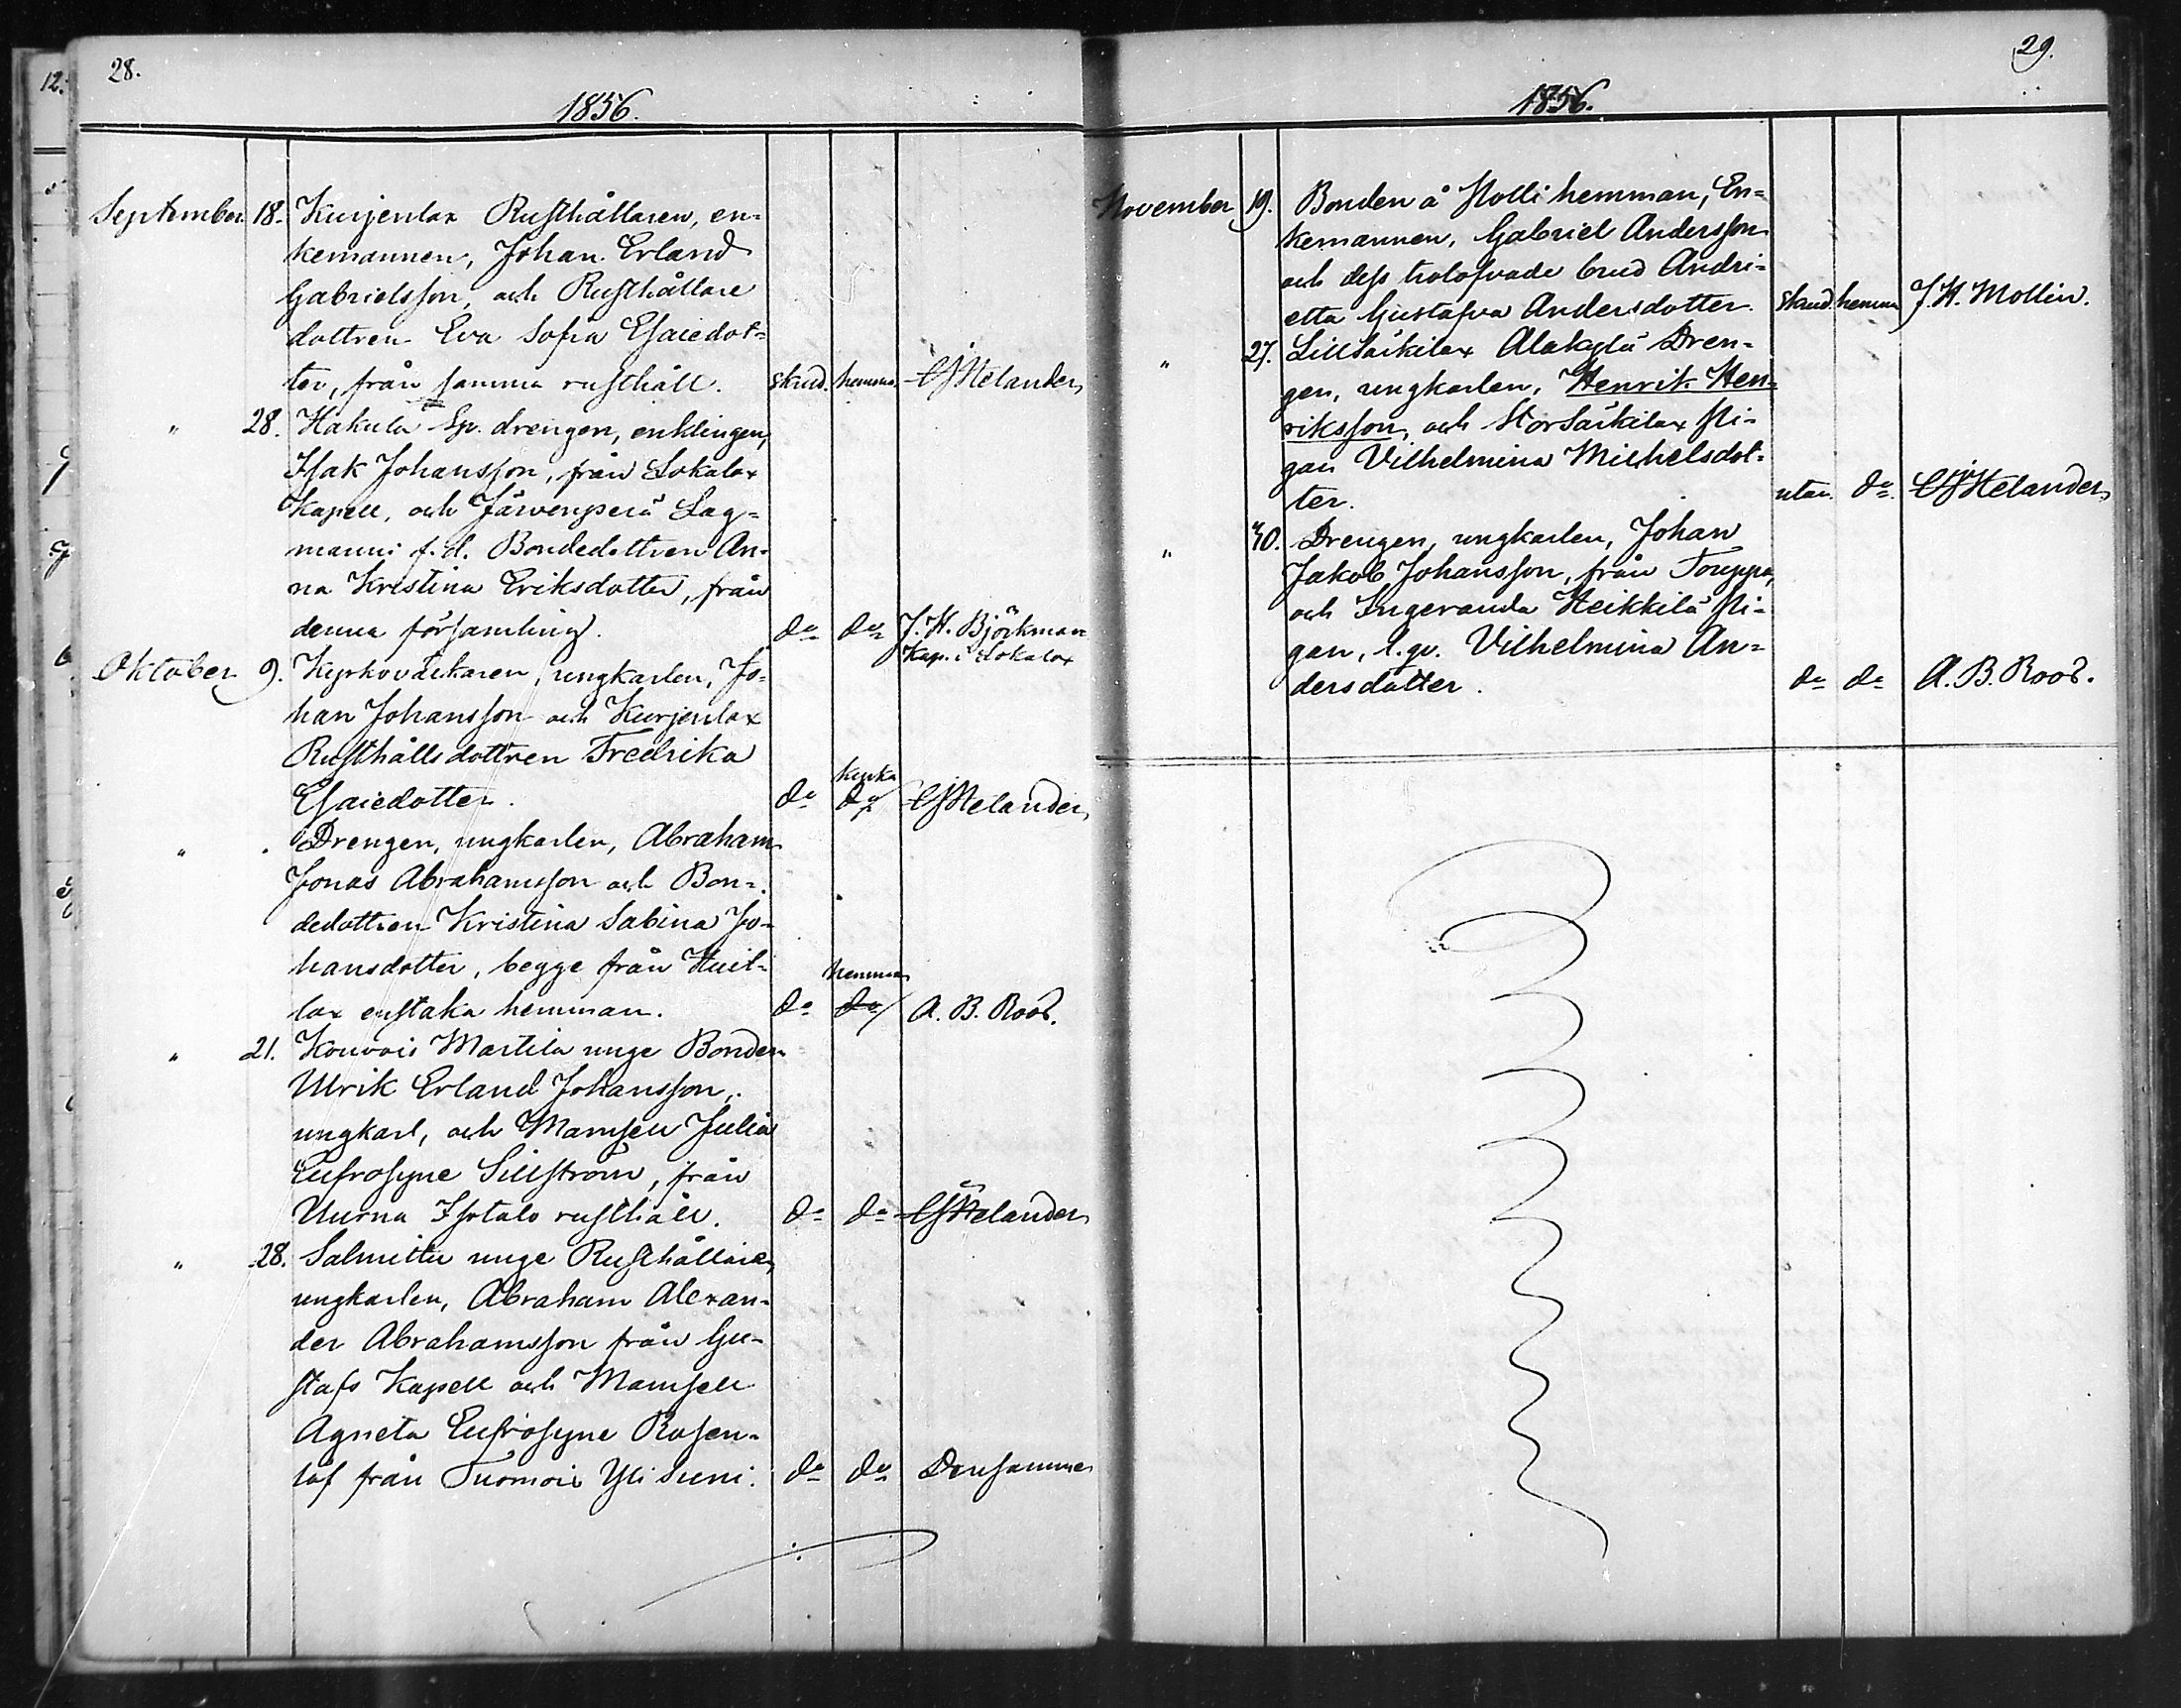 28.
1856.
September 18. Kurjenlax Rusthållaren, en-
kemannen, Johan Erland
Gabrielsson, och Rusthållare
dottren Eva Sofia Esaiedot-
ter, från samma rusthåll. skrud. hemma. CJHelander
" 28. Hakula Sp. drengen, enklingen,
Isak Johansson, från Lokalax
Kapell, och Järvenperä Lag-
manni f.d. Bondedottren An-
na Kristina Eriksdotter, från
denna församling. do do J. H. Björkman
Kap. i Lokalax
Oktober 9. Kyrkoväktaren, ungkarlen, Jo-
han Johansson och Kurjenlax
Rusthållsdottren Fredrika
kyrka
Esaiedotter. do do CJHelander
" . Drengen, ungkarlen, Abraham
Jonas Abrahamsson och Bon-
dedottren Kristina Sabina Jo-
hansdotter, begge från
hemma
lax enstaka hemman. do do A. B. Roos.
" 21. Kouvois Martila unge Bonden
Ulrik Erland Johansson,
ungkarl, och Mamsell Julia
Eufrosyne Sillström, från
Uurna Isotalo rusthåll. do do CJHelander
" 28. Salmittu unge Rusthållare,
ungkarlen, Abraham Alexan-
der Abrahamsson från Gu-
stafs Kapell och Mamsell
Agneta Eufrosyne Rosen-
löf från Tuomois Yli Suni. do do Densamme
29.
1856.
November 19. Bonden å Nolli hemman, En-
kemannen, Gabriel Andersson
och dess trolofvade brud Andri-
etta Gustafva Andersdotter. skrud. hemma J. H. Mollin.
" 27. Lillsärkilax Alakylä Dren-
gen, ungkarlen, Henrik Hen-
riksson, och Storsärkilax Pi-
gan Vilhelmina Michelsdot-
ter. utan. do CJHelander
" 30. Drengen, ungkarlen, Johan
Jakob Johansson, från Touppa,
och Ingeranda Heikkilä Pi-
gan, l.qv. Vilhelmina An-
dersdotter. do do A. B. Roos.